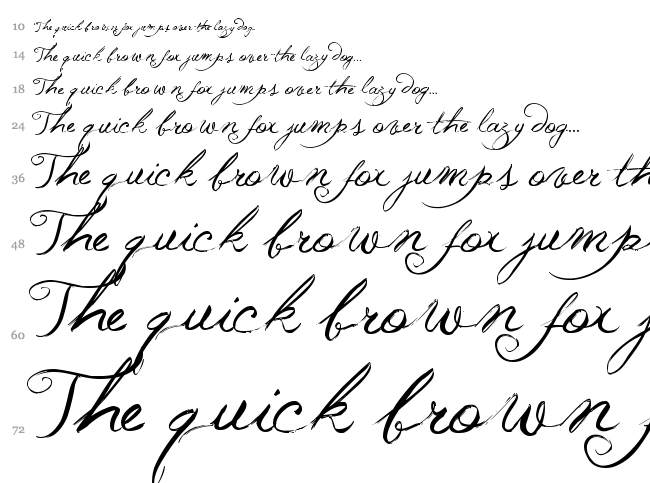 10 The quick brown fox jumps over the lazy dog...
14 The quick brown fox jumps over the lazy dog...
18 The quick brown fox jumps over the lazy dog...
24 The quick brown fox jumps over the lazy dog...
36 The quick brown fox jumps over th
48 The quick brown fox jump
60 The quick brown fox j
72 The quick brown